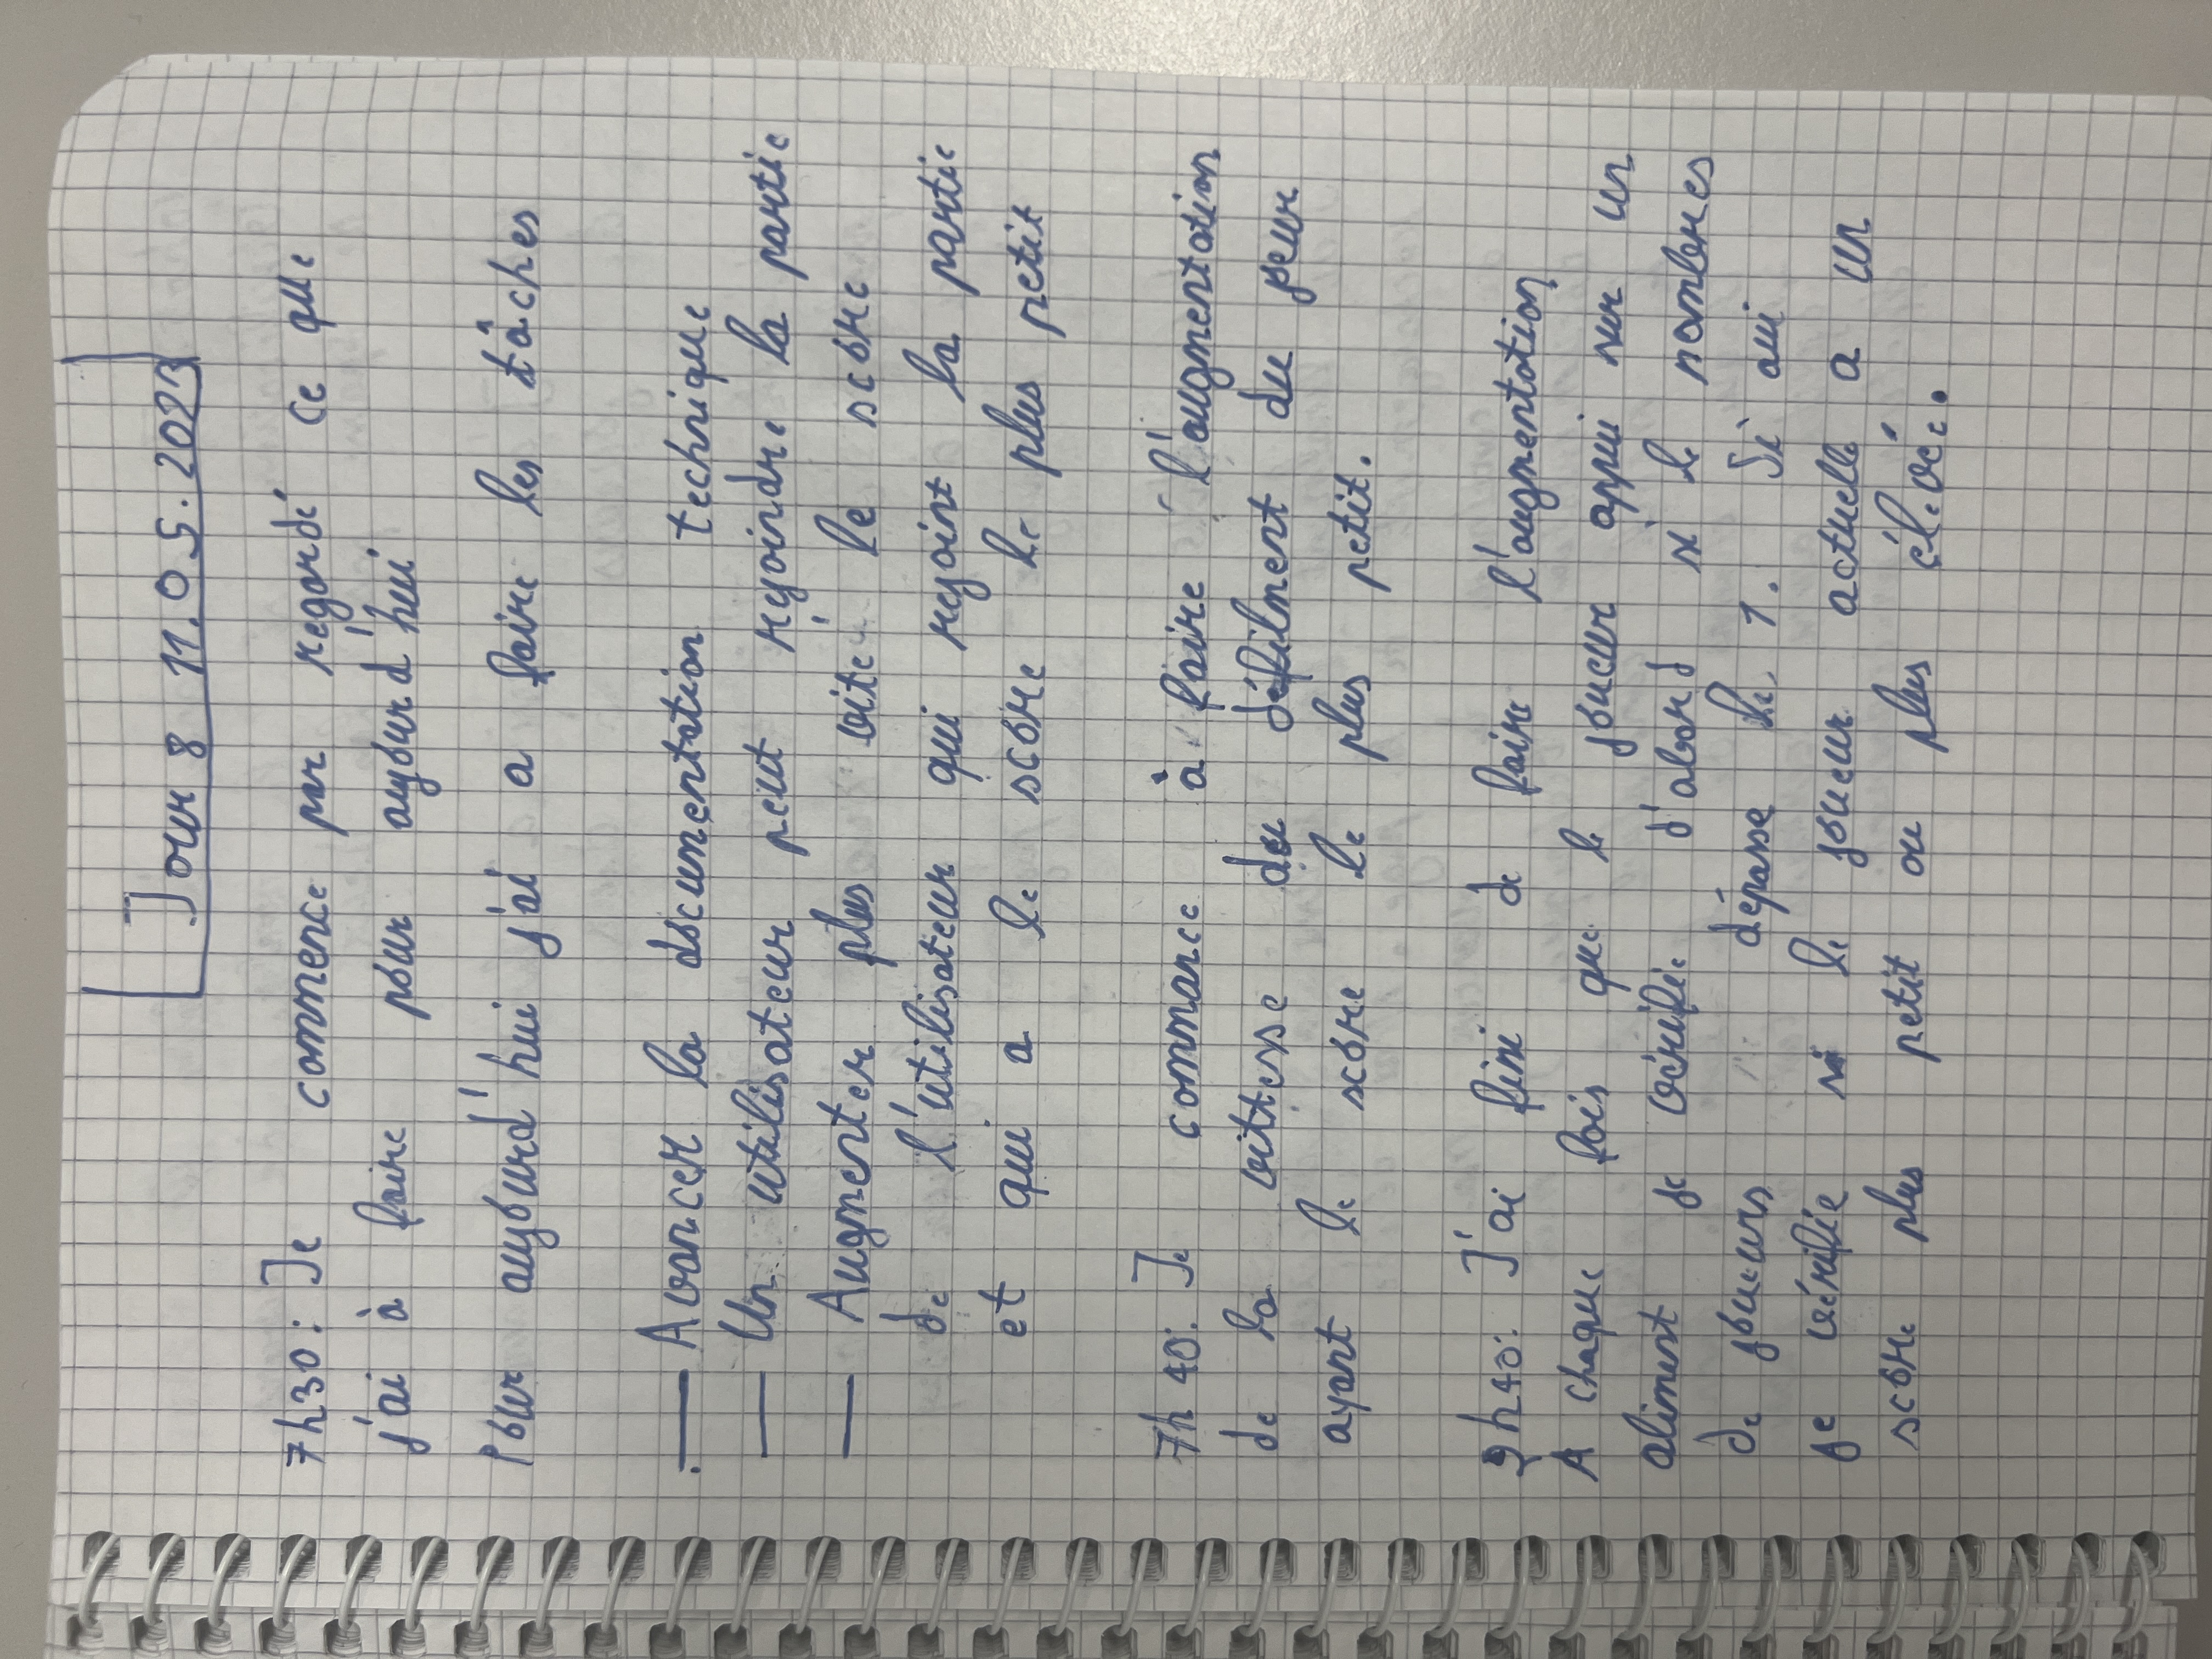 Jour 8 11.05.2023
7h30: Je commence par regardé ce que
j'ai à faire pour aujourd'hui
Pour aujourd'hui j'ai a faire les tâches
— Avancer la documentation technique
— Un utilisateur peut rejoindre la partie
— Augmenter plus vite le score
de l'utilisateur qui rejoint la partie
et qui a le score le plus petit
7h40: Je commance à faire l'augmentation
de la vittesse du défilment du jeur
ayant le score le plus petit.
9h40: J'ai fini de faire l'augmentation
A chaque fois que le joueur appui sur un
aliment je vérifie d'abord si le nombres
de joueurs dépasse le 1. Si oui
je vérifie si le joueur actuelle a un
score plus petit ou plus élevée.